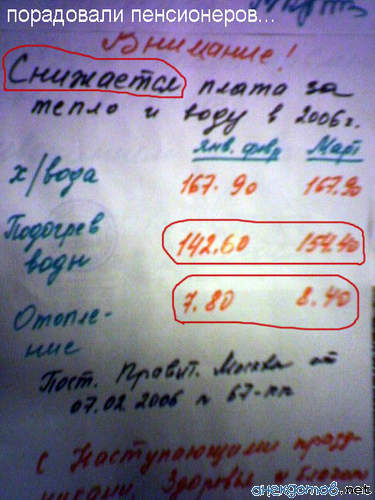 порадовали пенсионеров...
Внимание!
Снижается плата за
тепло и воду в 2006г.
янв. февр Март
х/вода 167.90 167.90
Подогрев
воды 142.60 154.40
Отопле-
ние 7.80 8.40
Пост. Правит. Москвы от
07.02 2006 N 67-пп
С Наступающими празд-
никами Здоровья
анекдотов.net